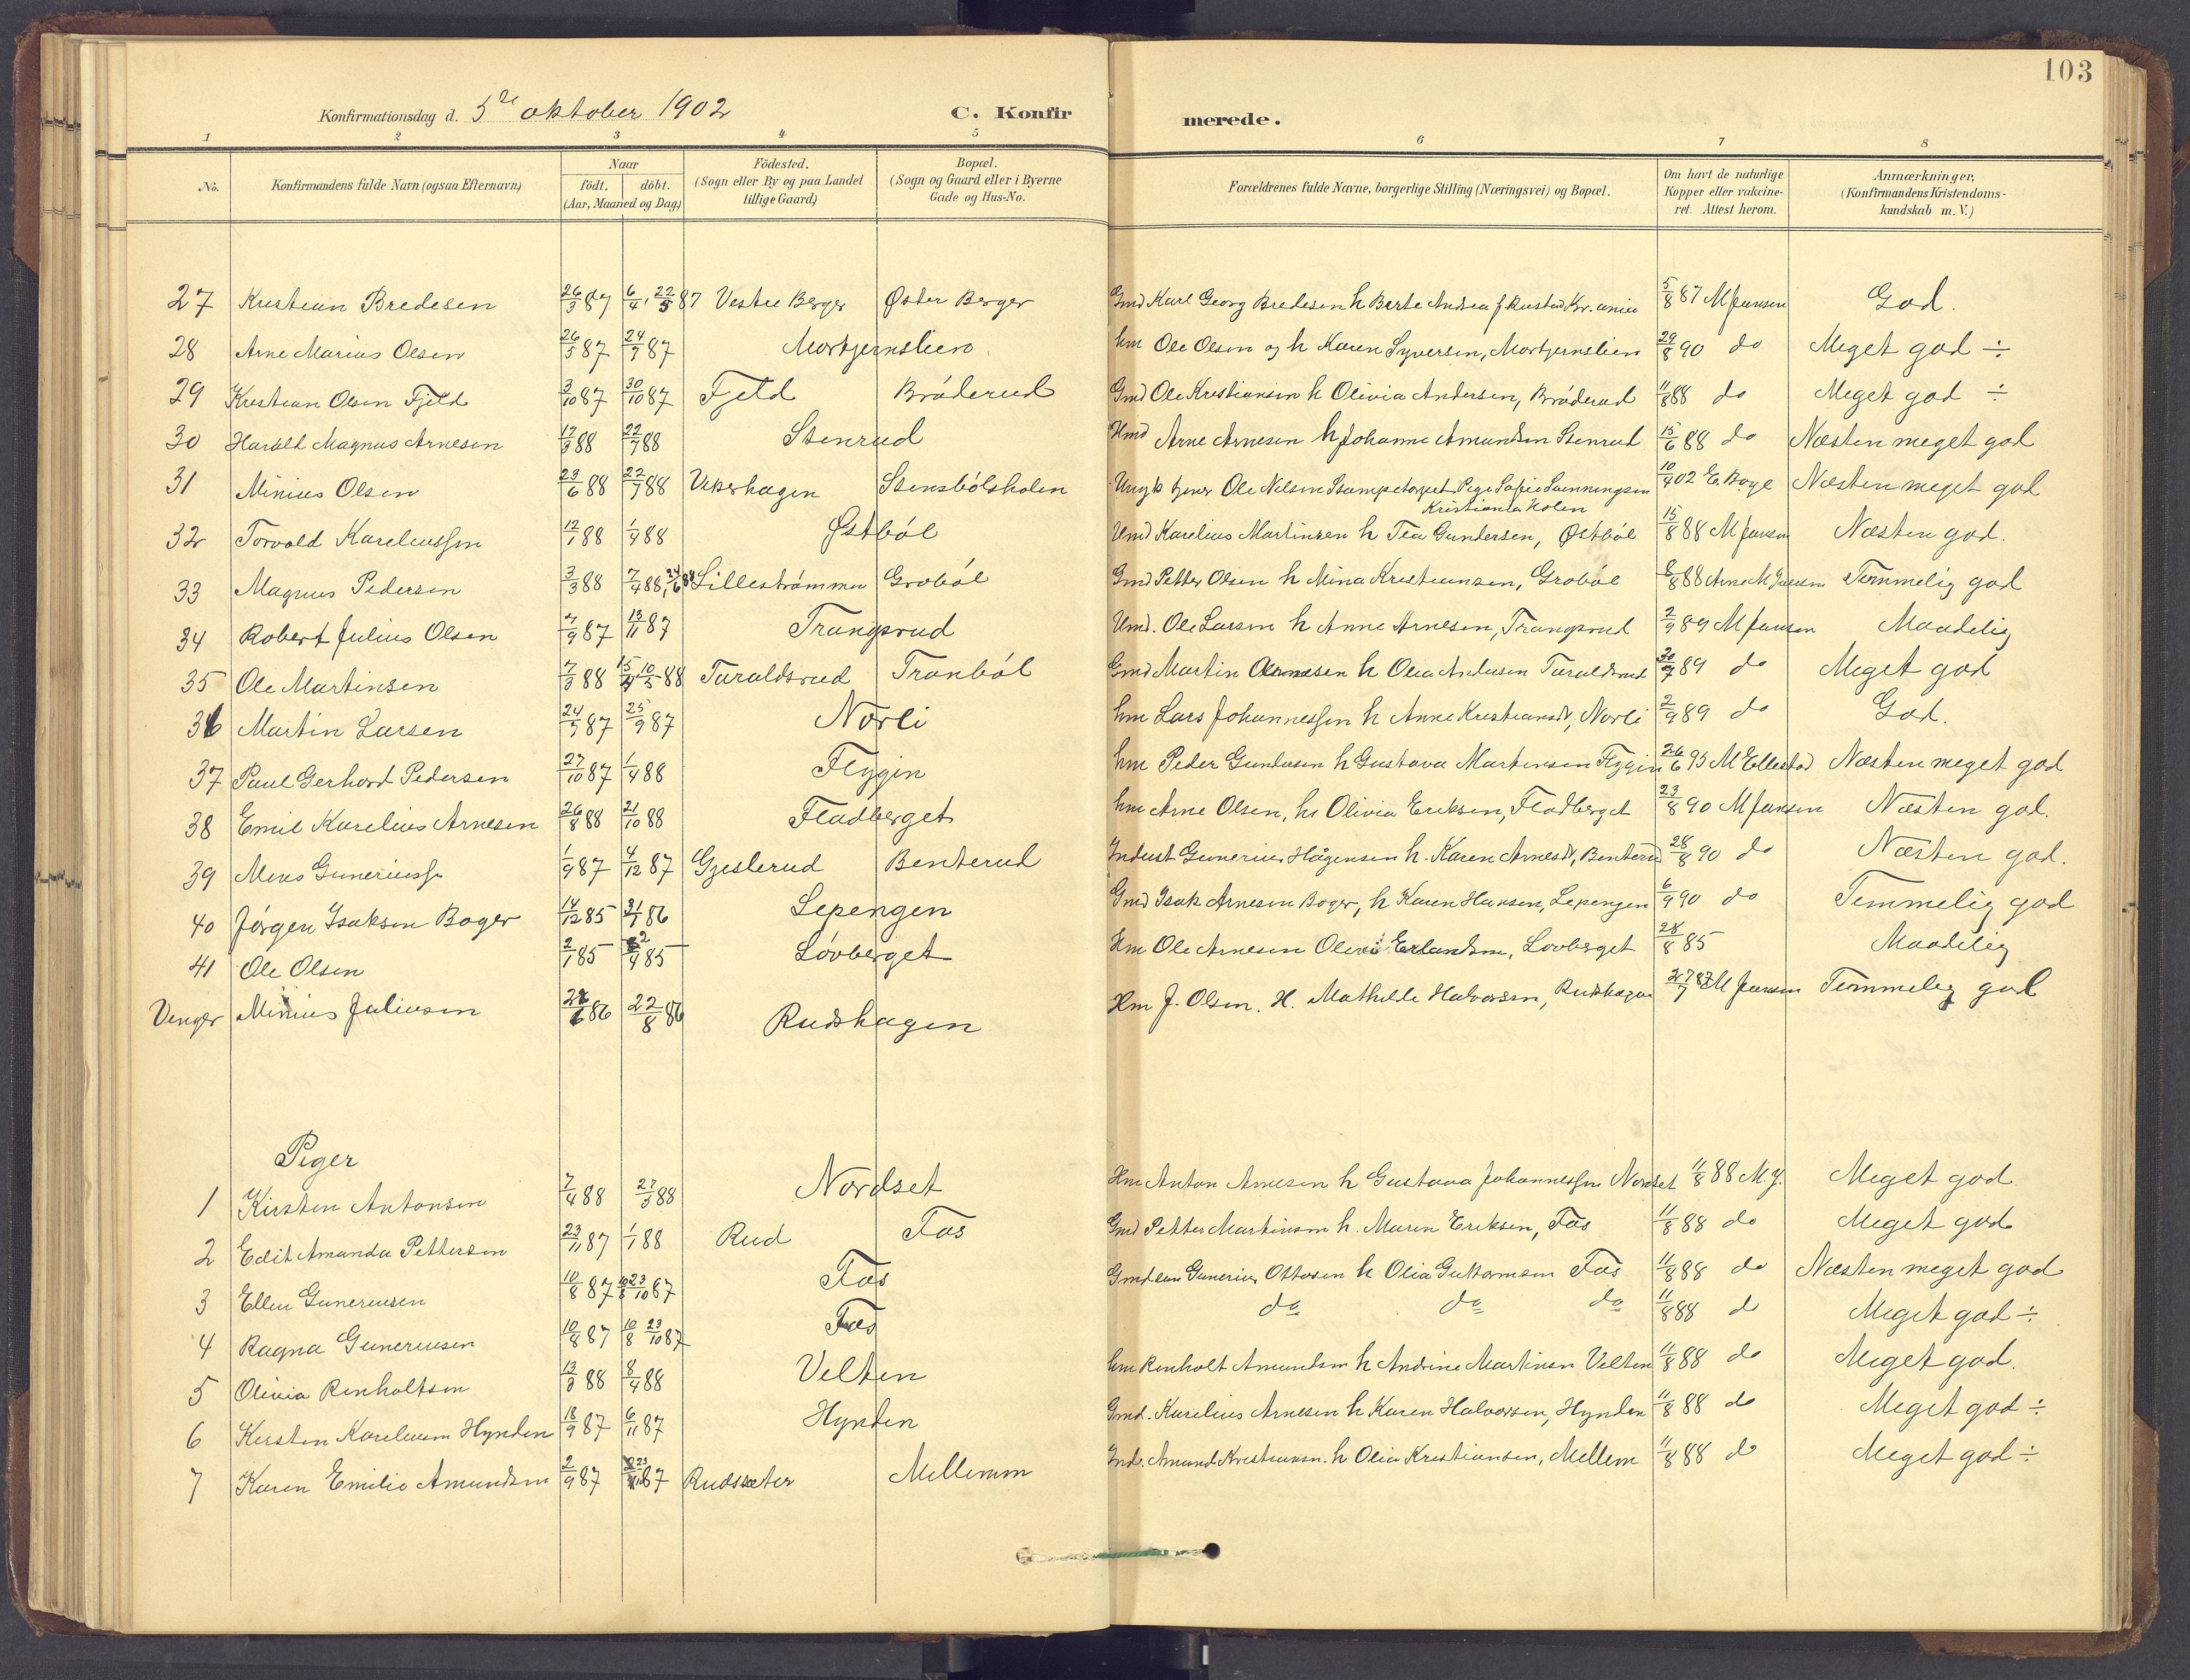 103
Konfirmationsdag d. 5te oktober 1902 C. Konfirmerede.
1 2 3 4 5 6 7 8
No. Konfirmandens fulde Navn (ogsaa Efternavn) Naar født. døbt. (Aar, Maaned og Dag.) Födested. (Sogn eller By og paa Landet tillige Gaard) Bopæl. (Sogn og Gaard eller i Byerne Gade og Hus-No. Forældrenes fulde Navne, borgerlige Stilling (Næringsvei) og Bopæl. Om havt de naturlige Kopper eller vakcineret. Attest herom. Anmærkninger, (Konfirmandens Kristendomskundskab m. V.)
27 Kristian Bredesen 26/3 87 6/4, 22/5 87 Vestre Berger Øster Berger Gmd Karl Georg Bredesen h Berte Andrea f Rustad, Kr.ania 5/8 87 M Jensen God.
28 Arne Marius Olsen 26/5 87 24/7 87 Mortjernslien hm Ole Olsen og h Karen Syversen, Mortjernslien 29/8 90 do Meget god ÷
29 Kristian Olsen Fjeld 3/10 87 30/10 87 Fjeld Bröderud Gmd Ole Kristiansen h Olivia Andersen, Bröderud 11/8 88 do Meget god ÷
30 Harald Magnus Arnesen 17/3 88 22/7 88 Stenrud Hmd Arne Arnesen h Johanne Amundsen Stenrud 15/6 88 do Næsten meget god
31 Minius Olsen 23/6 88 22/7 88 Vikerhagen Stensbölsholen Ungk tjener Ole Nilsen Stampetorpet Pige Sofie Svenningsen Kristiania Kolen 10/4 02 E. Boye Næsten meget god
32 Torvald Kareliussen 12/1 88 1/4 88 Østböl Gmd Karelius Martinsen h Tea Gundersen, Østböl 15/8 88 M Jensen Næsten god.
33 Magnus Pedersen 3/3 88 7/4 88, 24/6 88 Lillestrømmen Groböl Gmd Petter Olsen h Mina Kristiansen, Groböl 8/8 88 Arne M Jensen Temmelig god
34 Robert Julius Olsen 7/9 87 13/11 87 Trangsrud Gmd. Ole Larsen h Anne Arnesen, Trangsrud 2/9 89 M Jensen Maadelig
35 Ole Martinsen 7/3 88 15/4 10/5 88 Taraldsrud Tranböl Gmd Martin h Olea Andersen Taraldsrud 30/7 89 do Meget god
36 Martin Larsen 24/7 87 25/9 87 Norli hm Lars Johannessen h Anne Kristiansdt, Norli 2/9 89 do God.
37 Paul Gerhard Pedersen 27/10 87 1/4 88 Flygin hm Peder Gundersen h Gustava Martinsen Flygin 26/6 93 M Ellestad Næsten meget god
38 Emil Karelius Arnesen 26/8 88 21/10 88 Fladberget hm Arne Olsen, h Olivia Eriksen, Fladberget 23/8 90 M Jensen Næsten god.
39 Mens Guneriuss. 1/9 87 4/12 87 Gjeslerud Benterud Indust Gunerius Hågensen h. Karen Arnesdt, Benterud 28/8 90 do Næsten god.
40 Jörgen Isaksen Boger 14/12 85 31/1 86 Lepengen Gmd Isak Arnesen Boger, h Karen Hansen, Lepengen 6/9 90 do Temmelig god
41 Ole Olsen 2/1 85 2/4 85 Lövberget Hm Ole Arnesen Erlandsen, Lövberget 28/8 85 Maadelig
Venger Minius Juliusen 28/6 86 22/8 86 Rudshagen Hm J. Olsen. H. Mathilde Halvorsen, Rudshagen 27/7 87 M Jensen Temmelig god
Piger
1 Kirsten Antonsen 7/4 88 27/5 88 Nordset Hm Anton Arnesen h Gustava Johannessen Nordset 11/8 88 M.J. Meget god
2 Edit Amanda Pettersen 23/11 87 1/1 88 Rud Fas Gmd Petter Martinsen h. Maren Eriksen, Fas 11/8 88 do Meget god
3 Ellen Guneriusen 10/8 87 10/8 23/10 87 Fas Gmd Gunerius Ottosen h Olia Guttormsen Fas 11/8 88 do Næsten meget god
4 Ragna Guneriusen 10/8 87 10/8 23/10 87 Fas do do do 11/8 88 do Meget god ÷
5 Olivia Renholtsen 13/3 88 8/4 88 Velten hm Renholt Amundsen h Andrine Martinsen Velten 11/8 88 do Meget god.
6 Kirsten Kareliusen Hynden 18/9 87 6/11 87 Hynden Gmd. Karelius Arnesen h Karen Halvorsen, Hynden 11/8 88 do Meget god ÷
7 Karen Emilie Amundsen 2/9 87 87 Rudsæter Mellemm Ind. Amund Kristiansn. h Olia Kristiansen, Mellem 11/8 88 do Meget god ÷